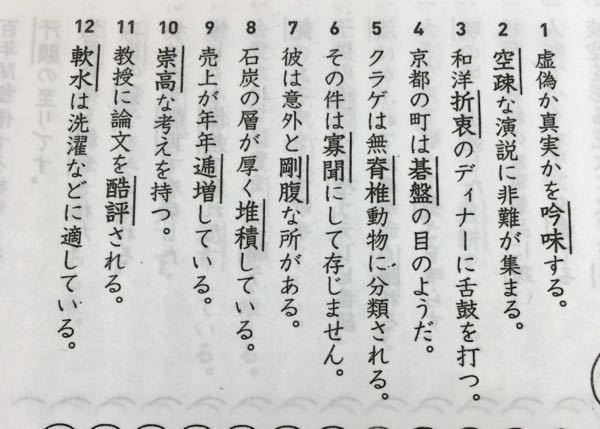 1 虚偽か真実かを吟味する。
2 空疎な演説に非難が集まる。
3 和洋折衷のディナーに舌鼓を打つ。
4 京都の町は碁盤の目のようだ。
5 クラゲは無脊椎動物に分類される。
6 その件は寡聞にして存じません。
7 彼は意外と剛腹な所がある。
8 石炭の層が厚く堆積している。
9 売上が年年逓増している。
10 崇高な考えを持つ。
11 教授に論文を酷評される。
12 軟水は洗濯などに適している。